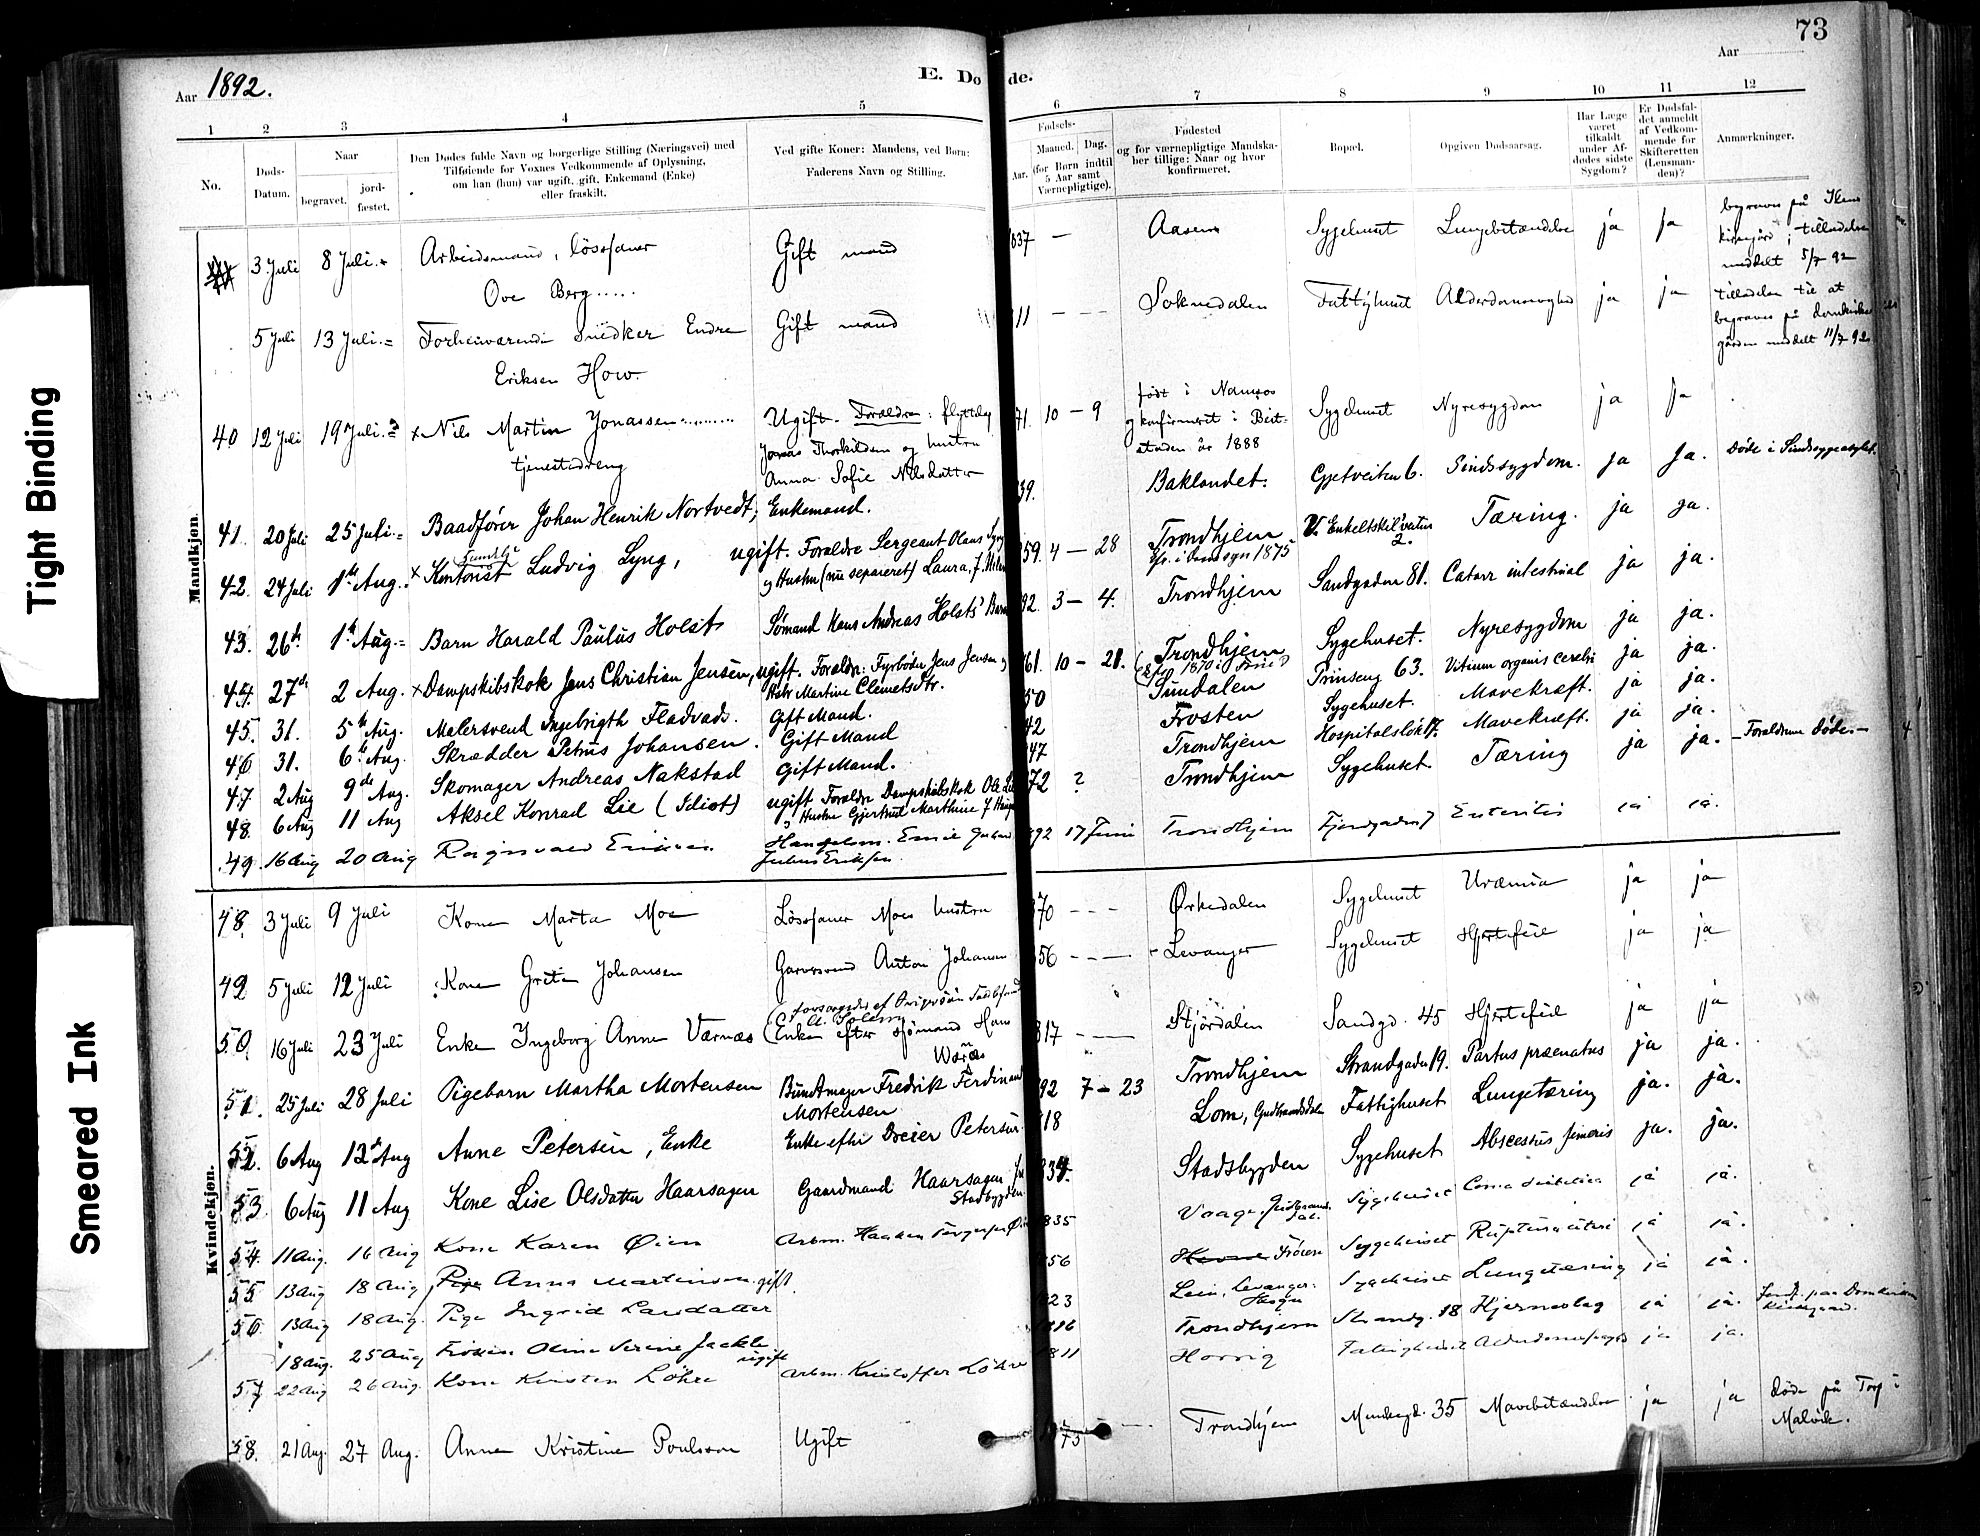 73
Aar 1892.
E. Dø de.
Aar
1 2 3 4 5 6 7 8 9 10 11 12
No.
Døds-
Datum.
Naar
begravet.
jord-
fæstet.
Den Dødes fulde Navn og borgerlige Stilling (Næringsvei) med
Tilføiende for Voxnes Vedkommende af Oplysning,
om han (hun) var ugift, gift, Enkemand (Enke)
eller fraskilt.
Ved gifte Koner: Mandens, ved Børn:
Faderens Navn og Stilling.
Fødsels-
Aar. Maaned. Dag.
(for Børn indtil
5 Aar samt
Værnepligtige).
Fødested
og for værnepligtige Mandska-
ber tillige: Naar og hvor
konfirmeret.
Bopæl.
Opgiven Dødsaarsag.
Har Læge
været
tilkaldt
under Af-
dødes sidste
Sygdom?
Er Dødsfal-
det anmeldt
af Vedkom-
mende for
Skifteretten
(Lensman-
den)?
Anmærkninger.
Mandkjøn.
3 Juli 8 Juli Arbeidsmand, løssjauer Gift mand 837 — Aasen Sygehuset Lungebetændelse ja ja begraves på
Ove Berg..... tilladelse
meddelt 5/7 92
5 Juli 13 Juli Forhenværende Snedker Endre Gift mand 11 — Soknedalen Fattighuset Alderdomssvaghed ja ja tilladelse til at
Eriksen How. begraves på Domkirke
gården meddelt 11/7 92
40 12 Juli 19 Juli Nils Martin Jonassen Ugift. Forældre: 71 10 — 9 født i Namsos Sygehuset Nyresygdom ja ja
tjenestedreng Jonas Thorkildsen og hustru og konfirmeret i Beit-
Anna Sofie Nilsdatter staden år 1888
41. 20 Juli 25 Juli Baadfører Johan Henrik Nortvedt, Enkemand. 39. Baklandet. Gjetveiten 6. Sindssygdom. ja ja. Døde i Sindssygeasylet.
42. 24 Juli 1ste Aug. Kontorist Ludvig Lyng, ugift. Forældre Sergeant Olaus Lyng 859 4 — 28 Trondhjem V. Enkeltskilveiten 2. Tæring. ja ja.
og Hustru (nu separeret) Laura, f.
43. 26de 1ste Aug. Barn Harald Paulus Holst Sømand Hans Andreas Holsts Barn 92 3 — 4. Trondhjem Sandgaden 81. Catarr intestinal ja ja.
44. 27de 2 Aug. Dampskibskok Jens Christian Jensen, ugift. Forældre: Fyrbøder Jens Jensen og 61. 10 — 21. Trondhjem Sygehuset. Nyresygdom ja ja.
Hstr Martine Clemetsdtr.
45. 31. 5te Aug. Malersvend Ingebrigth Fladvads. Gift Mand. 50 Sundalen Prinseng 63. Vitium organis cerebri ja ja.
46 31. 6te Aug. Skrædder Petrus Johansen. Gift Mand 42 Frosten Sygehuset. Mavekræft. ja ja.
47 2 Aug 9de Aug. Skomager Andreas Nakstad Gift Mand. 47 Trondhjem Hospitalsløk 17. Mavekræft. ja ja.
48. 6 Aug 11 Aug Aksel Konrad Lie (Idiot) ugift Forældre Dampskibskok Ole Lie 72 ? Trondhjem Sygehuset Tæring ja ja. — Forældrene døde. —
og Hustru Gjertrud Marthine f.
49. 16 Aug 20 Aug Ragnvald Eriksen Emil 92 17 Juni Trondhjem Fjordgaden 7 Enteritis ja ja.
Julius Eriksen.
Kvindekjøn.
48. 3 Juli 9 Juli Kone Marta Moe Løssjauer Moes hustru 870 - - - Ørkedalen Sygehuset Uræmia ja ja
49 5 Juli 12 Juli Kone Greta Johansen Garversvend Anton Johansen 856 - - - Levanger Sygehuset Hjertefeil ja ja
50. 16 Juli 23 Juli Enke Ingeborg Anna Værnæs (Enke efter Sjømand Hans 817 - - Stjørdalen Sandgd. 45 Hjertefeil ja ja
Wærnæs
51. 25 Juli 28 Juli Pigebarn Martha Mortensen Buntmager Fredrik Ferdinand 92 7 — 23 Trondhjem Strandgaden 19. Partus prænatus ja ja.
Mortensen
52. 6 Aug 12te Aug Anne Petersen, Enke Enke efter Dreier Petersen 818 Lom, Gudbrandsdalen Fattighuset Lungetæring ja. ja.
53. 6 Aug 11 Aug Kone Lise Olsdatter Haarsagen Gaardmand Haarsagen 834. Stadsbygden Sygehuset Abscessus femoris ja. ja.
Stadsbygden
54. 11 Aug. 16 Aug Kone Karen Øien Arbm. Haaken Torgersen Øien 835 Vaage, Gudbrands- Sygehuset Coma diabetica ja ja.
dal.
55 13 Aug 18 Aug Pige Anna Martinsen gift. 56 Frøien Sygehuset Ruptura uteri ja ja.
56. 13 Aug 18 Aug. Pige Ingrid Larsdatter 23 Lein, Levanger. Sygehuset Lungetæring ja ja.
Skogn
18 Aug. 25 Aug Frøken Oline Serine Jackle ugift Trondhjem Strandg. 18 Hjerneslag ja ja.
57 22 Aug 26 Aug. Kone Kirsten Løhre Arbm. Kristoffer Løhre 811 Horrig Fattighuset ja ja.
58. 21 Aug. 27 Aug. Anna Kristine Poulsson Ugift 75 — Trondhjem Munkegd. 35 Mavebetændelse ja ja Døde på Torp i
Malvik.
Tight Binding
Smeared Ink